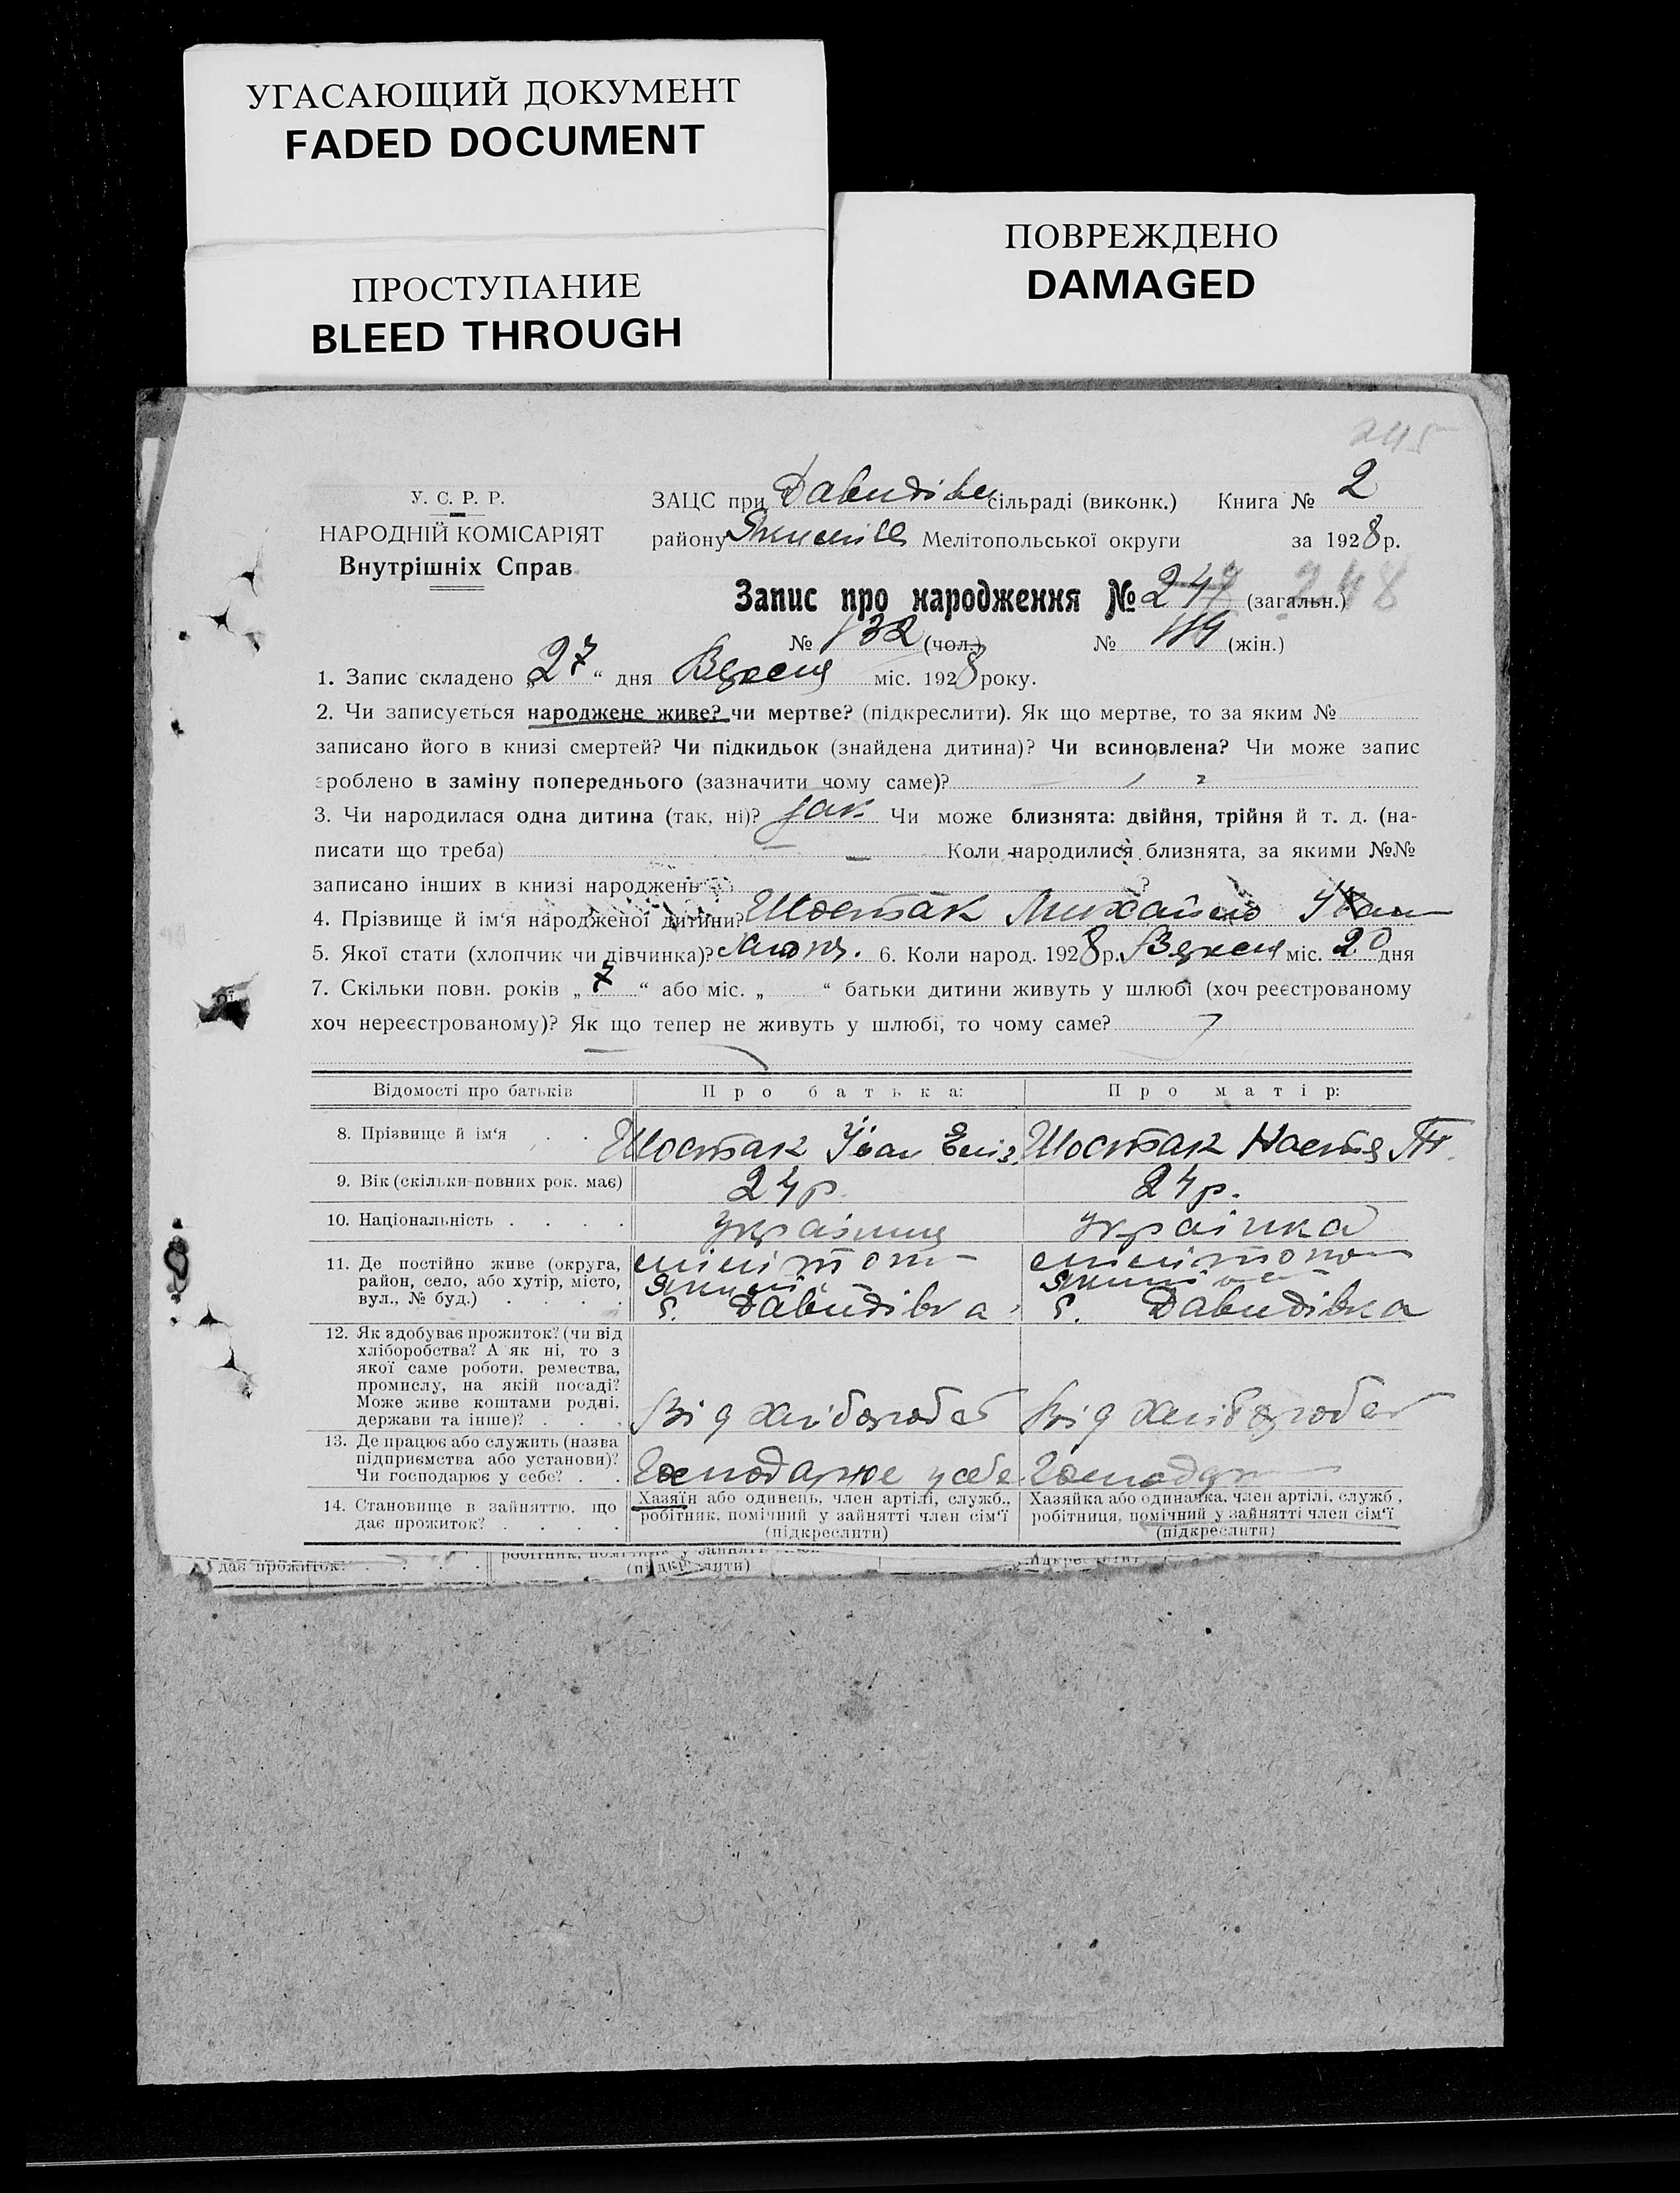 УГАСАЮЩИЙ ДОКУМЕНТ
FADED DOCUMENT
ПРОСТУПАНИЕ
BLEED THROUGH
ПОВРЕЖДЕНО
DAMAGED
245
У. С. Р. Р.
НАРОДНІЙ КОМІСАРІЯТ
Внутрішніх Справ
ЗАЦС при Давидівс сільраді (виконк.) Книга № 2
району Мелітопольської округи за 1928 р.
Запис про народження № 247 (загальн.) 248
№ 132 (чол.) № (жін.)
1. Запис складено „27“ дня Вересня міс. 1928 року.
2. Чи записується народжене живе? чи мертве? (підкреслити). Як що мертве, то за яким №
записано його в книзі смертей? Чи підкидьок (знайдена дитина)? Чи всиновлена? Чи може запис
зроблено в заміну попереднього (зазначити чому саме)?
3. Чи народилася одна дитина (так, ні)? так Чи може близнята: двійня, трійня й т. д. (на-
писати що треба) Коли народилися близнята, за якими №№
записано інших в книзі народжень ?
4. Прізвище й ім‘я народженої дитини? Шостак Михайло Іван
5. Якої стати (хлопчик чи дівчинка)? 6. Коли народ. 1928 р. Вересня міс. 20 дня
7. Скільки повн. років „7“ або міс. „ “ батьки дитини живуть у шлюбі (хоч реєстрованому
хоч нереєстрованому)? Як що тепер не живуть у шлюбі, то чому саме?
Відомості про батьків Про батька: Про матір:
8. Прізвище й ім‘я . . Шостак Іван Шостак Настя
9. Вік (скільки повних рок. має) 24 р. 24 р.
10. Національність . . . . українець українка
11. Де постійно живе (округа,
район, село, або хутір, місто,
вул., № буд.) . . . .
с. Давидівка с. Давидівка
12. Як здобуває прожиток? (чи від
хліборобства? А як ні, то з
якої саме роботи, ремества,
промислу, на якій посаді?
Може живе коштами родні,
держави та інше)? . . .
Від хліборобст Від хліборобст
13. Де працює або служить (назва
підприємства або установи)?
Чи господарює у себе? . .
Господарює у себе Господар
14. Становище в зайняттю, що
дає прожиток? . . . .
Хазяїн або одинець, член артілі, служб.,
робітник, помічний у зайнятті член сім‘ї
(підкреслити)
Хазяйка або одиначка, член артілі, служб.,
робітниця, помічний у зайнятті член сім‘ї
(підкреслити)
дає прожиток. . . . . (підкреслити)